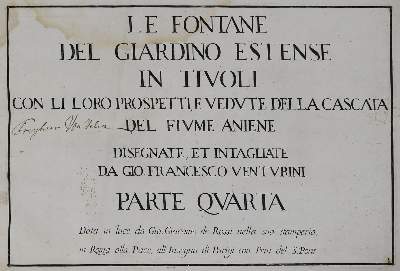 LE FONTANE
DEL GIARDINO ESTENSE
IN TIVOLI
CON LI LORO PROSPETTI, E VEDVTE DELLA CASCATA
DEL FIVME ANIENE
DISEGNATE, ET INTAGLIATE
DA GIO. FRANCESCO VENTVRINI
PARTE QVARTA
Data in luce da Gio. Giacomo de Rossi nella sua stamperia,
in Roma alla Pace, all'Insegna di Parigi con Priu. del S. Pont.